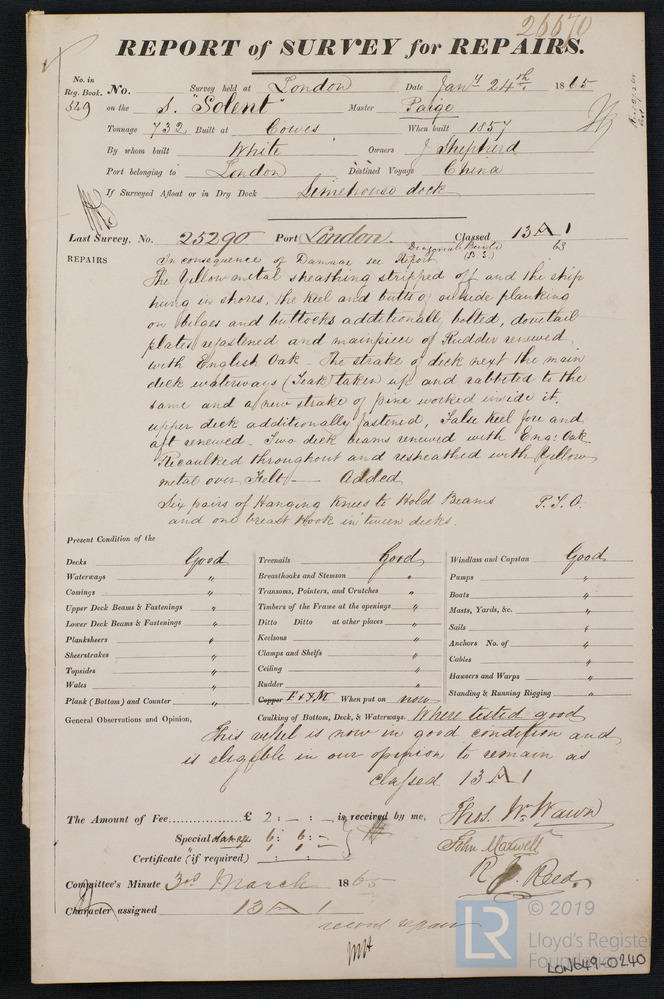 26670
REPORT of SURVEY for REPAIRS.
No. in Reg. Book. No. Survey held at London Date Jany 24th 1865
549 on the S. "Solent" Master Paige
Tonnage 732 Built at Cowes When built 1857
By whom built White Owners J Shepherd
Port belonging to London Destined Voyage China
If Surveyed Afloat or in Dry Dock Limehouse dock
Last Survey, No. 25290 Port London. Classed 13 A 1
63
REPAIRS In consequence of Damage see Report
The Yellow metal sheathing stripped off and the ship
hung in shores, the keel and butts of outside planking
on bilges and buttocks additionally bolted, dovetail
plates refastened and mainpiece of Rudder renewed
with English Oak - The strake of deck next the main
deck waterways (Teak) taken up and rabbited to the
same and a new strake of pine worked inside it,
upper deck additionally fastened, False keel fore and
aft renewed - Two deck beams renewed with Eng: Oak
Recaulked throughout and resheathed with Yellow
metal over Felt - Added
Six pairs of Hanging Knees to Hold Beams P.T.O.
and one breast Hook in tween decks.
Present Condition of the
Decks Good Treenails Good Windlass and Capstan Good
Waterways " Breasthooks and Stemson " Pumps "
Comings " Transoms, Pointers, and Crutches " Boats "
Upper Deck Beams & Fastenings " Timbers of the Frame at the openings " Masts, Yards, &c. "
Lower Deck Beams & Fastenings " Ditto Ditto at other places " Sails "
Planksheers " Keelsons " Anchors No. of "
Sheerstrakes " Clamps and Shelfs " Cables "
Topsides " Ceiling " Hawsers and Warps "
Wales " Rudder " Standing & Running Rigging "
Plank (Bottom) and Counter " Copper F & Y M When put on now
General Observations and Opinion, Caulking of Bottom, Deck, & Waterways. Where tested good
This vessel is now in good condition and
is eligible in our opinion to remain as
classed 13 A 1
The Amount of Fee £ 2 : - : - is received by me, Thos. Wm Wawn
Special 6 : 6 : - John Maxwell
Certificate (if required) : : R J Reed
Committee's Minute 3rd March 1865
Character assigned 13 A 1
record repairs
© 2019
LR Lloyd's Register
Foundation
LON649-0240